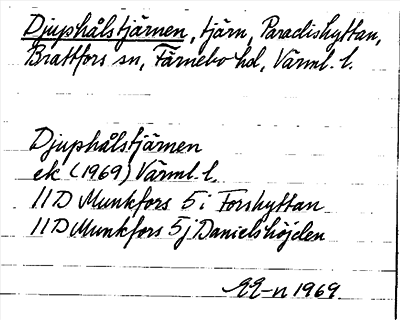 Djuphålstjärnen, tjärn, Paradishyttan,
Brattfors sn, Färnebo hd, Värml. l.
Djuphålstjärnen
ek (1969) Värml. l.
11D Munkfors 5i Forshyttan
11D Munkfors 5j Danielshöjden
EE-n 1969